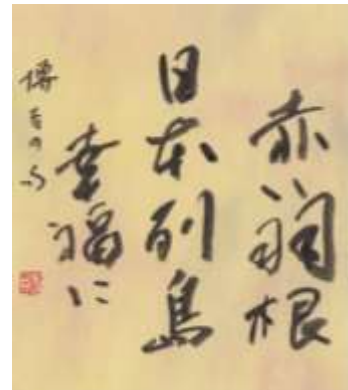 赤い羽根
日本列島
幸福に